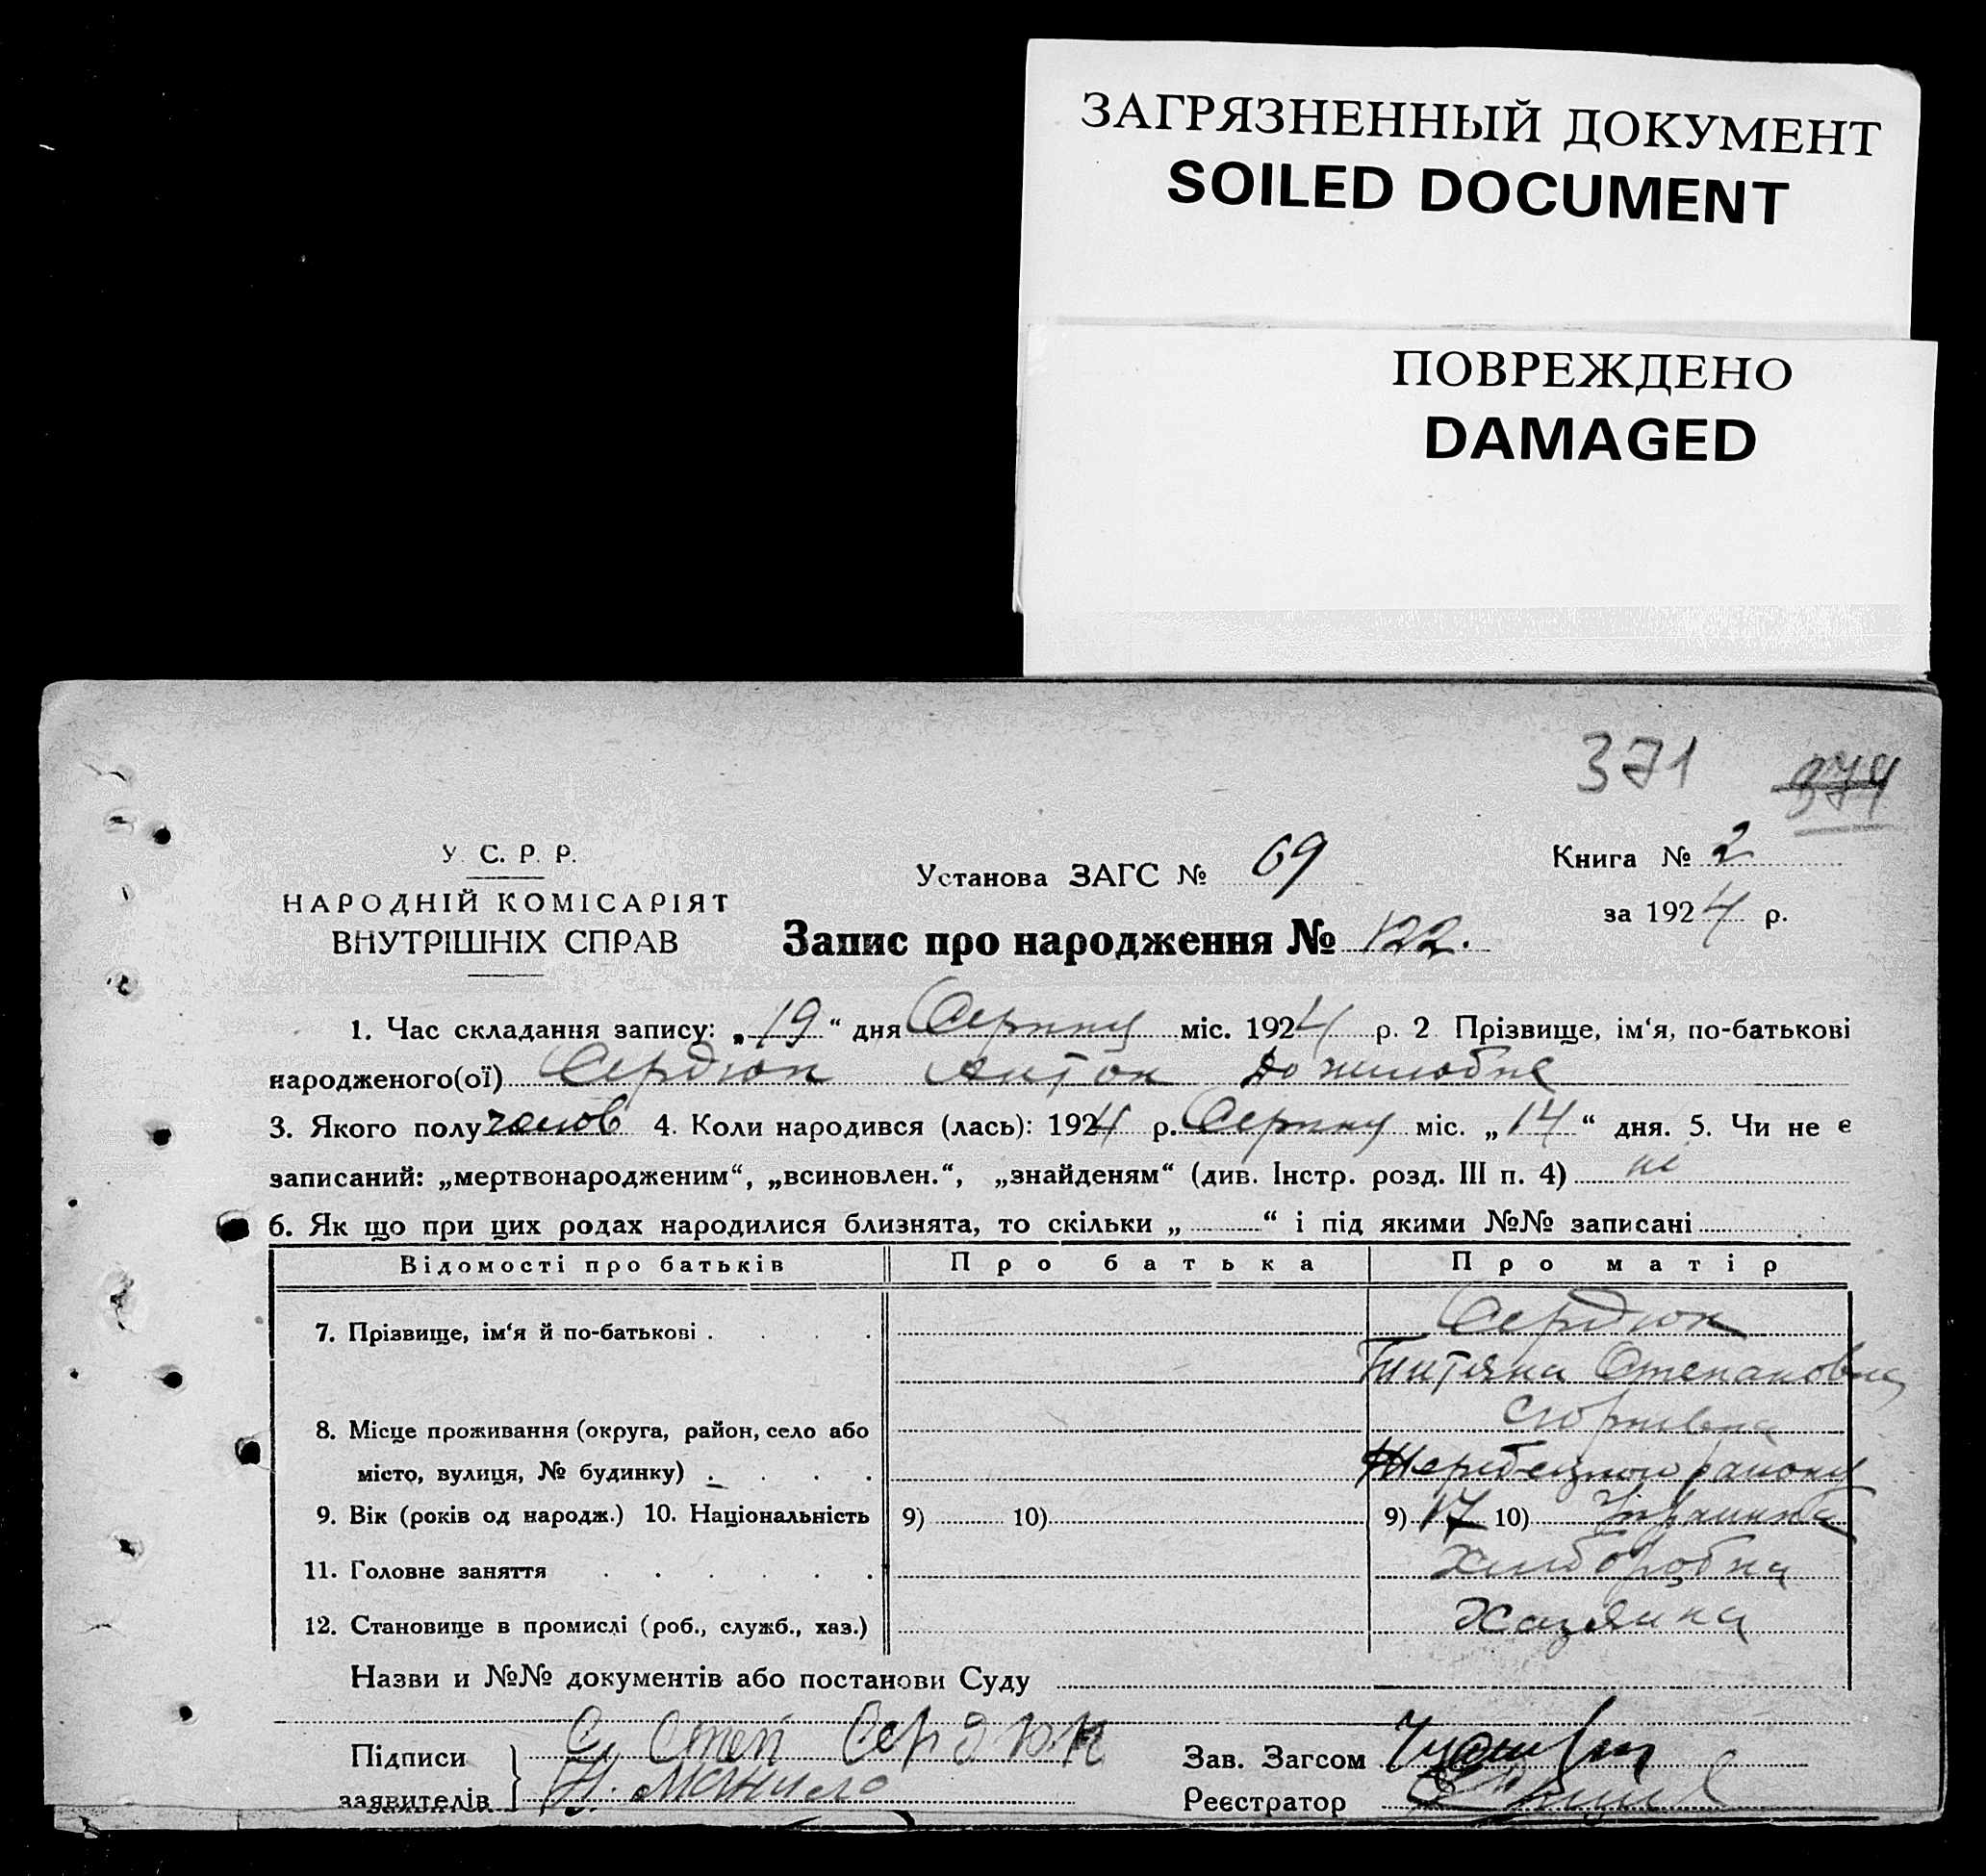 ЗАГРЯЗНЕННЫЙ ДОКУМЕНТ
SOILED DOCUMENT
ПОВРЕЖДЕНО
DAMAGED
371 374
У. С. Р. Р.
НАРОДНІЙ КОМІСАРІЯТ
ВНУТРІШНІХ СПРАВ
Установа ЗАГС № 69
Книга № 2
за 1924 р.
Запис про народження № 122.
1. Час складання запису: „19“ дня Серпну міс. 1924 р. 2 Прізвище, ім‘я, по-батькові
народженого(ої) Сердюк Антон
3. Якого полу чолов 4. Коли народився (лась): 1924 р. Серпну міс. „14“ дня. 5. Чи не є
записаний: „мертвонародженим“, „всиновлен.“, „знайденям“ (див. Інстр. розд. III п. 4) ні
6. Як що при цих родах народилися близнята, то скільки „ “ і під якими №№ записані
Відомості про батьків Про батька Про матір
7. Прізвище, ім‘я й по-батькові Сердюк
Степановна
8. Місце проживання (округа, район, село або
місто, вулиця, № будинку) району
9. Вік (років од народж.) 10. Національність 9) 10) 9) 17 10)
11. Головне заняття Хліборобка
12. Становище в промислі (роб., служб., хаз.) Хазяйка
Назви и №№ документів або постанови Суду
Підписи Сердюк Зав. Загсом
заявителів Реєстратор